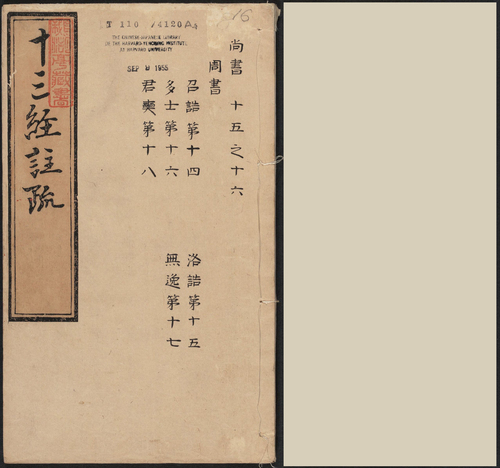 十三經註疏
T 110 /4120A
16
THE CHINESE-JAPANESE LIBRARY
OF THE HARVARD-YENCHING INSTITUTE
AT HARVARD UNIVERSITY
SEP 9 1955
尚書 十五之十六
周書
召誥第十四 洛誥第十五
多士第十六 無逸第十七
君奭第十八